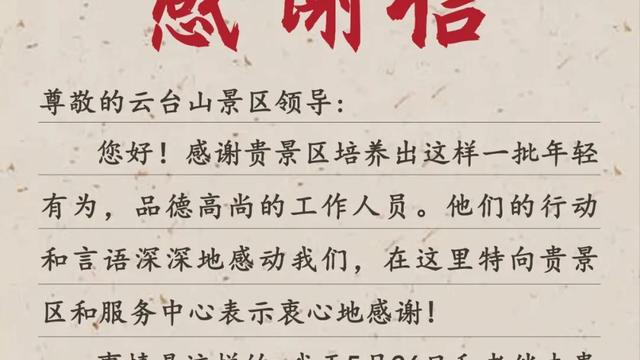 感谢信
尊敬的云台山景区领导：
您好！感谢贵景区培养出这样一批年轻
有为，品德高尚的工作人员。他们的行动
和言语深深地感动我们，在这里特向贵景
区和服务中心表示衷心地感谢！
事情是这样的